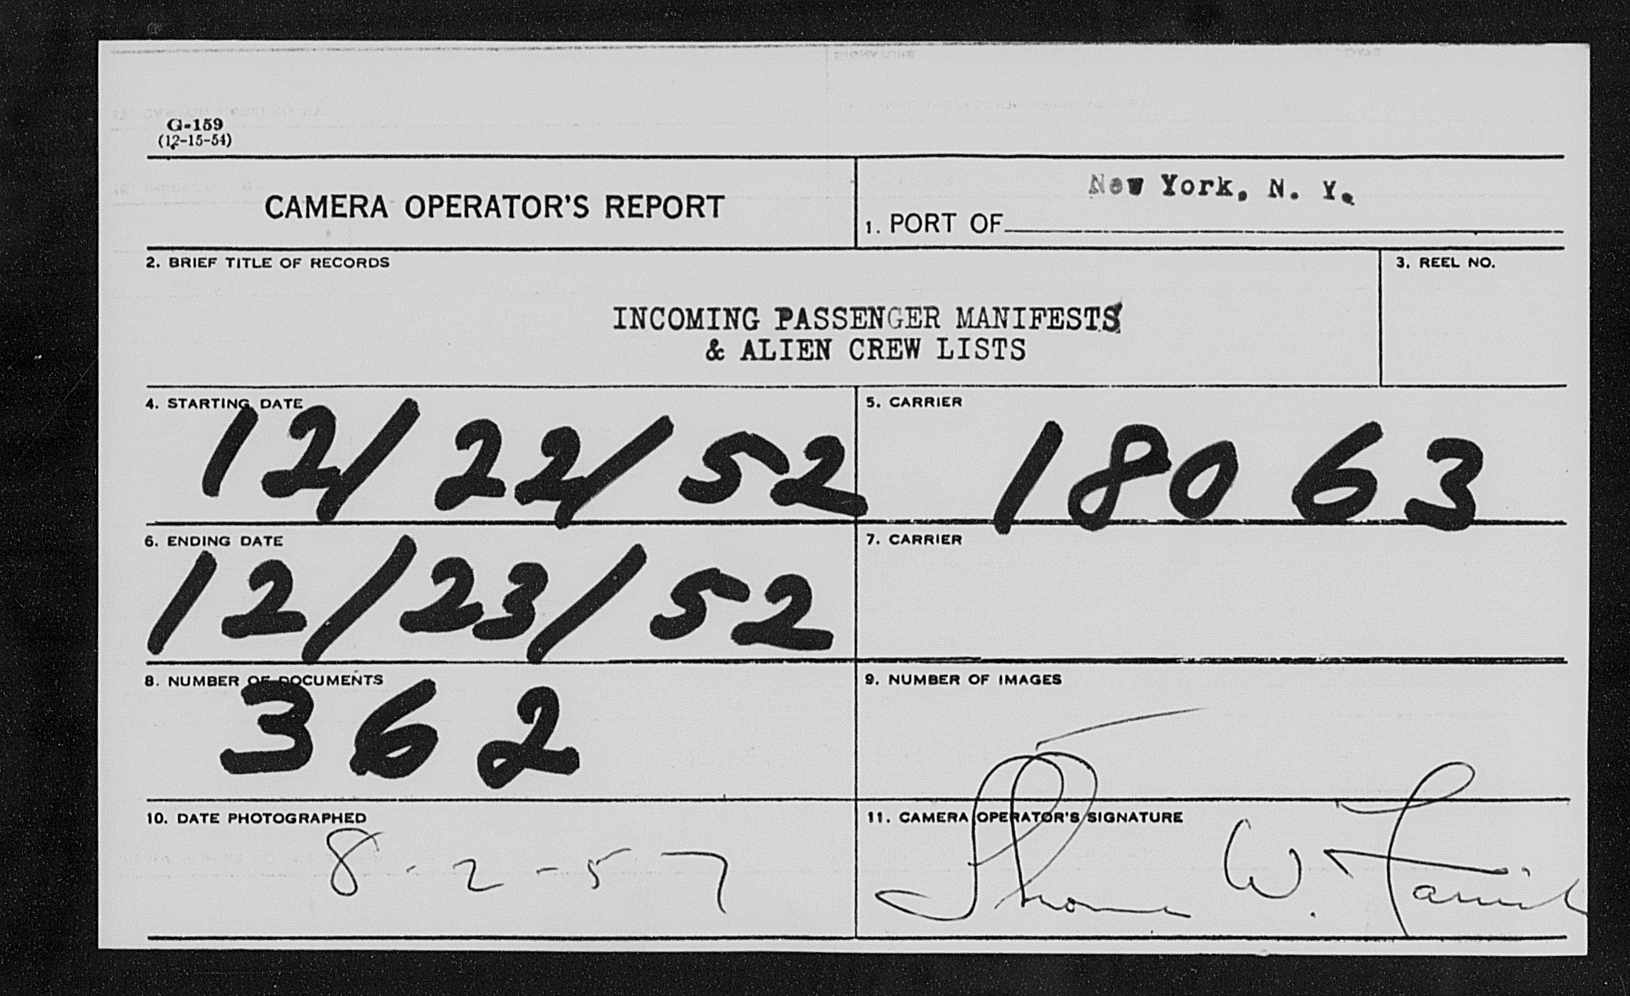 G-159
(12-15-54)
CAMERA OPERATOR'S REPORT
New York, N. Y.
1. PORT OF
2. BRIEF TITLE OF RECORDS
3. REEL NO.
INCOMING PASSENGER MANIFESTS
& ALIEN CREW LISTS
4. STARTING DATE
5. CARRIER
12/22/52
18063
6. ENDING DATE
7. CARRIER
12/23/52
8. NUMBER OF DOCUMENTS
9. NUMBER OF IMAGES
362
10. DATE PHOTOGRAPHED
11. CAMERA OPERATOR'S SIGNATURE
8-2-57
Thomas W.